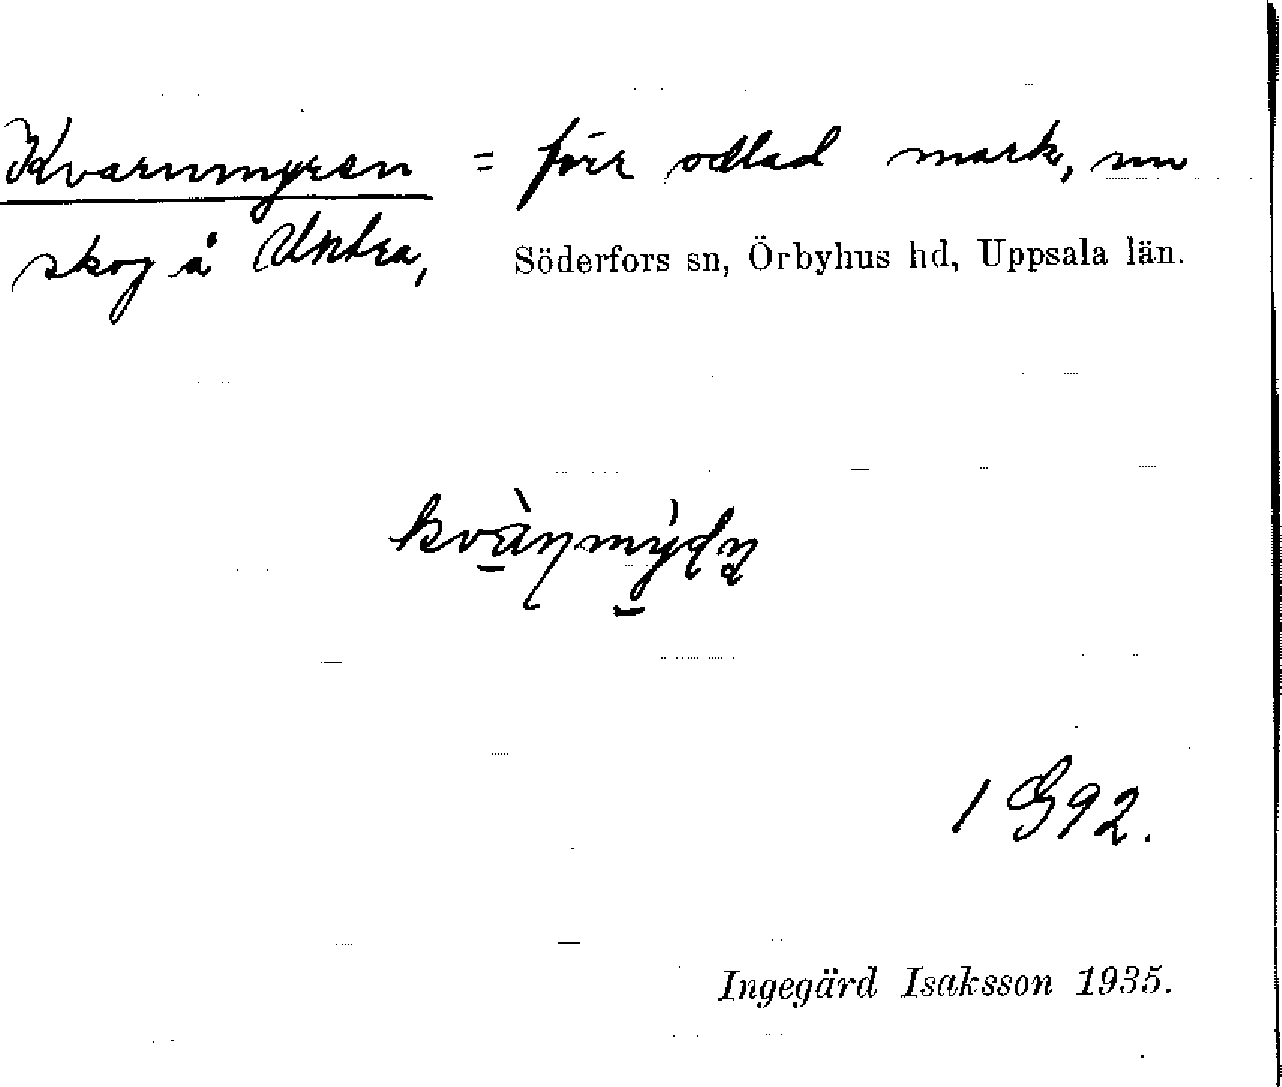 Kvarnmyren = förr odlad mark, nu
skog å Untra, Söderfors sn, Örbyhus hd, Uppsala län.
1 G 92.
Ingegärd Isaksson 1935.